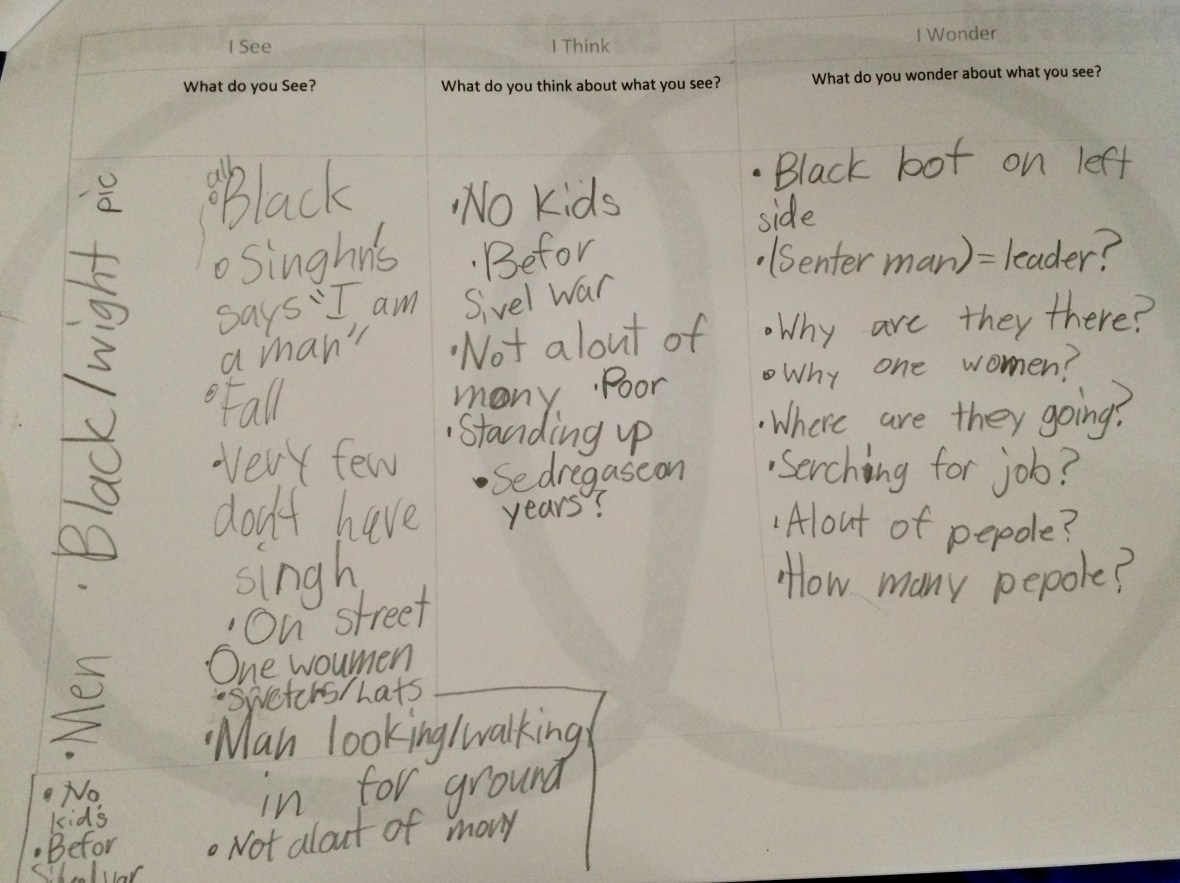 I See
What do you See?
all
•Black
• Singhn's
says "I am
a man"
•Fall
•Very few
don't have
singh
•On street
One woumen
•Sweters/hats
•Man looking/walking
in for ground
• Not alout of mony
•Men • Black/wight pic
• No
kids
•Befor
I Think
What do you think about what you see?
•No Kids
•Befor
Sivel War
•Not alout of
mony •Poor
•Standing up
•Sedregaseon
years?
I Wonder
What do you wonder about what you see?
• Black bot on left
side
•(Senter man)=leader?
•Why are they there?
•Why one women?
•Where are they going?
•Serching for job?
•Alout of pepole?
•How many pepole?